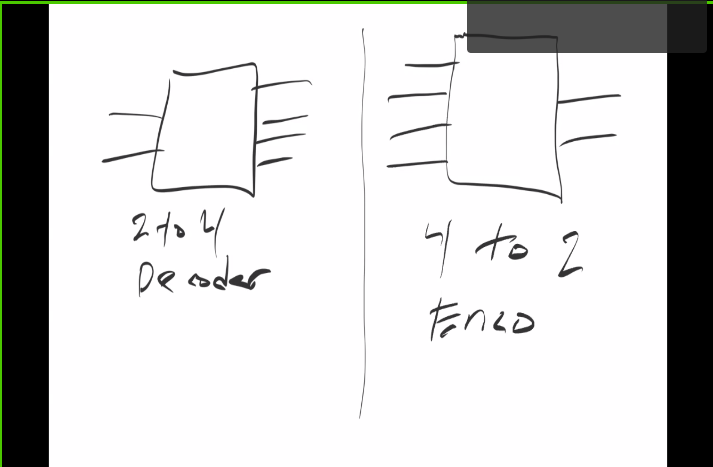 2 to 4
Decoder
4 to 2
Enco